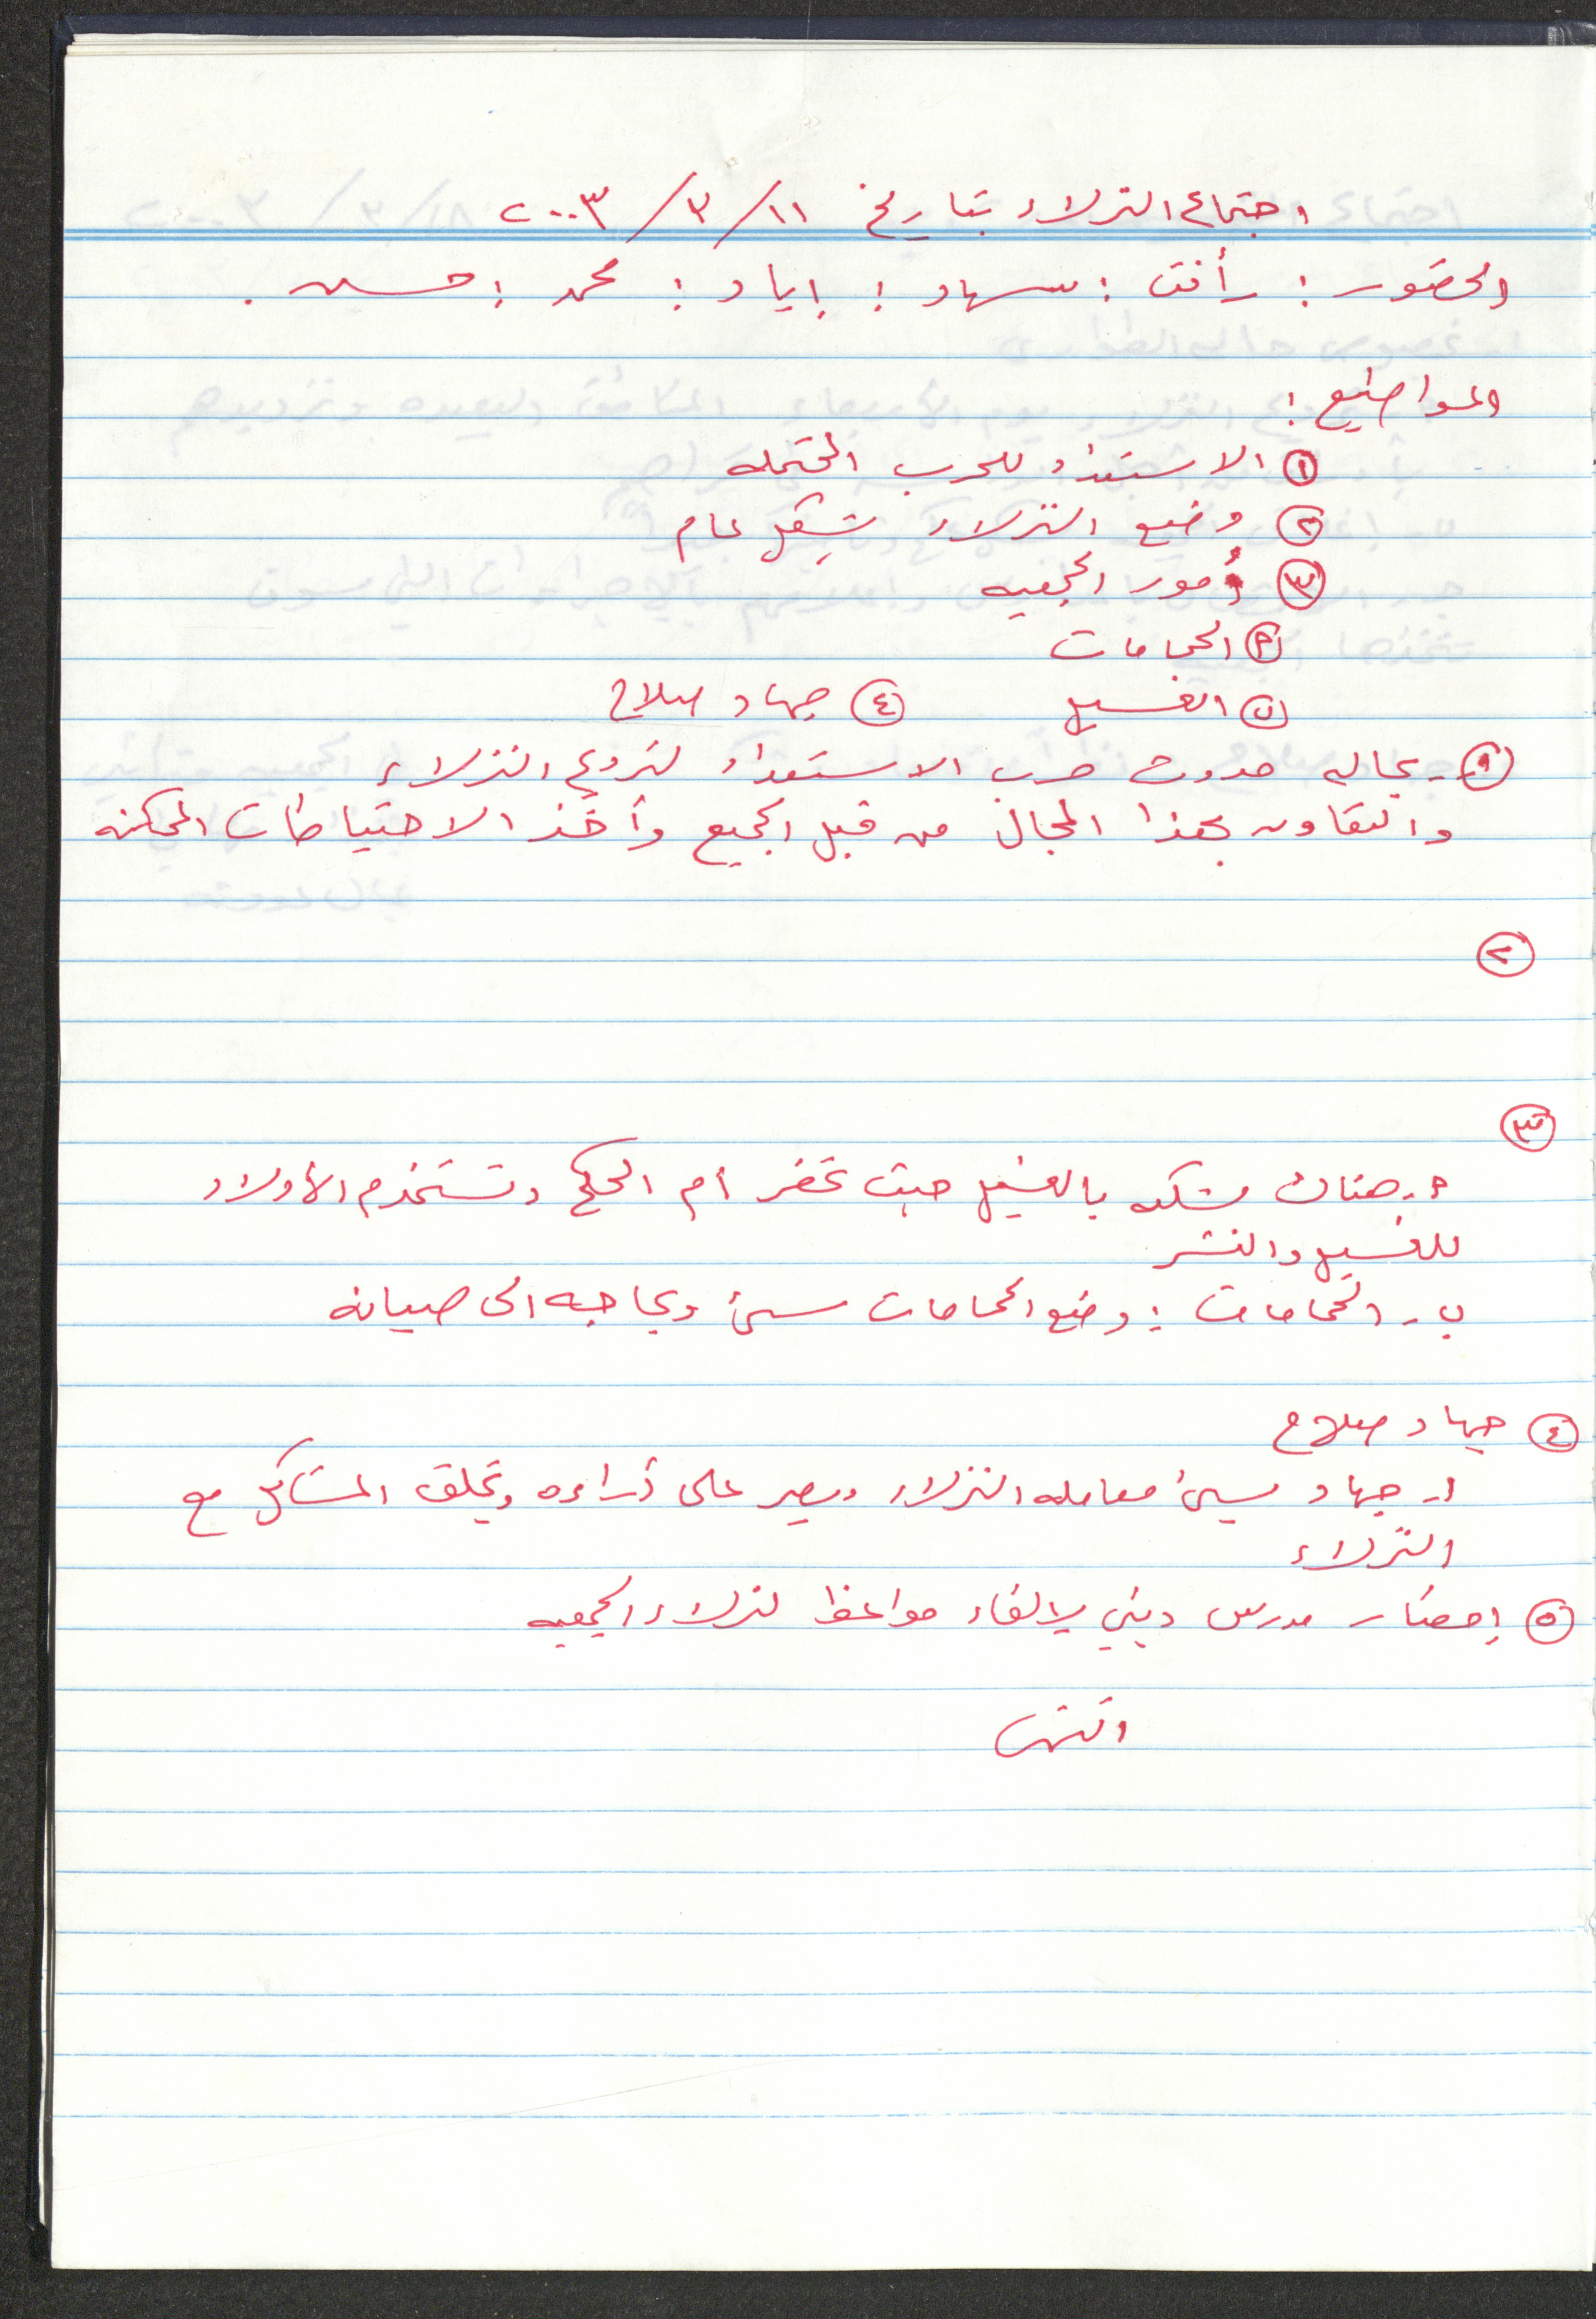 اجتماع النزلاء بتاريخ ١١/٣/٢٠٠٣
الحضور : رأفت : سهاد : إياد : محمد : حسن .
المواضيع :
١ الاستعداد للحرب المحتمله
٢ وضع النزلاء بشكل عام
٣ أمور الجمعيه
أ الحمامات
ب الغسيل ٤ جهاد صلاح
١- بحاله حدوث حرب الاستعداد لترويح النزلاء
والتعاون بهذا المجال من قبل الجميع وأخذ الاحتياطات الممكنه
٢
٣
أ- هناك مشكله بالغسيل حيث تحضر أم الحكم وتستخدم الأولاد
للغسيل والنشر
ب- الحمامات : وضع الحمامات سيئ وبحاجه الى صيانه
٤ جهاد صلاح
أ- جهاد يسيئ معامله النزلاء ويصر على أراءه ويخلق المشاكل مع
النزلاء
٥ إحضار مدرس ديني لإلقاء مواعظ لنزلاء الجمعيه
انتهى